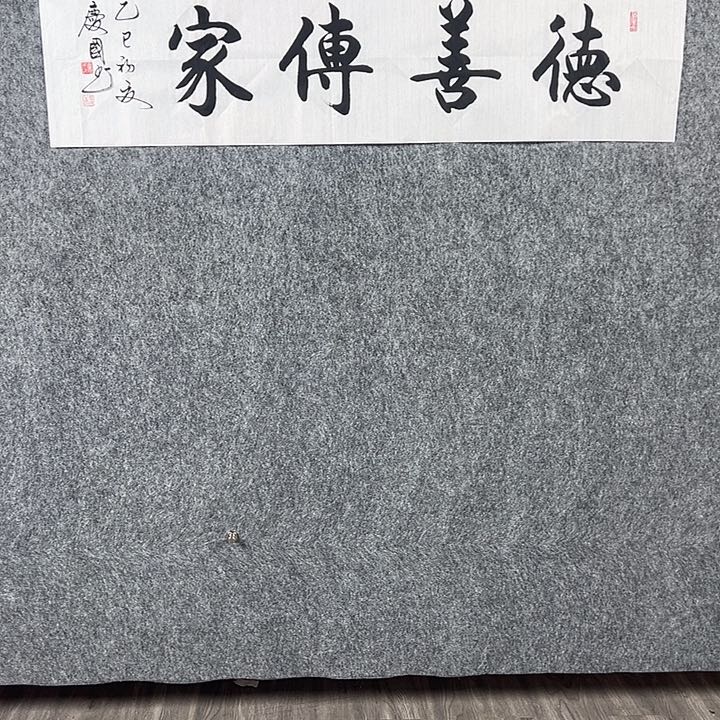 德善傳家
乙巳初夏
慶國書